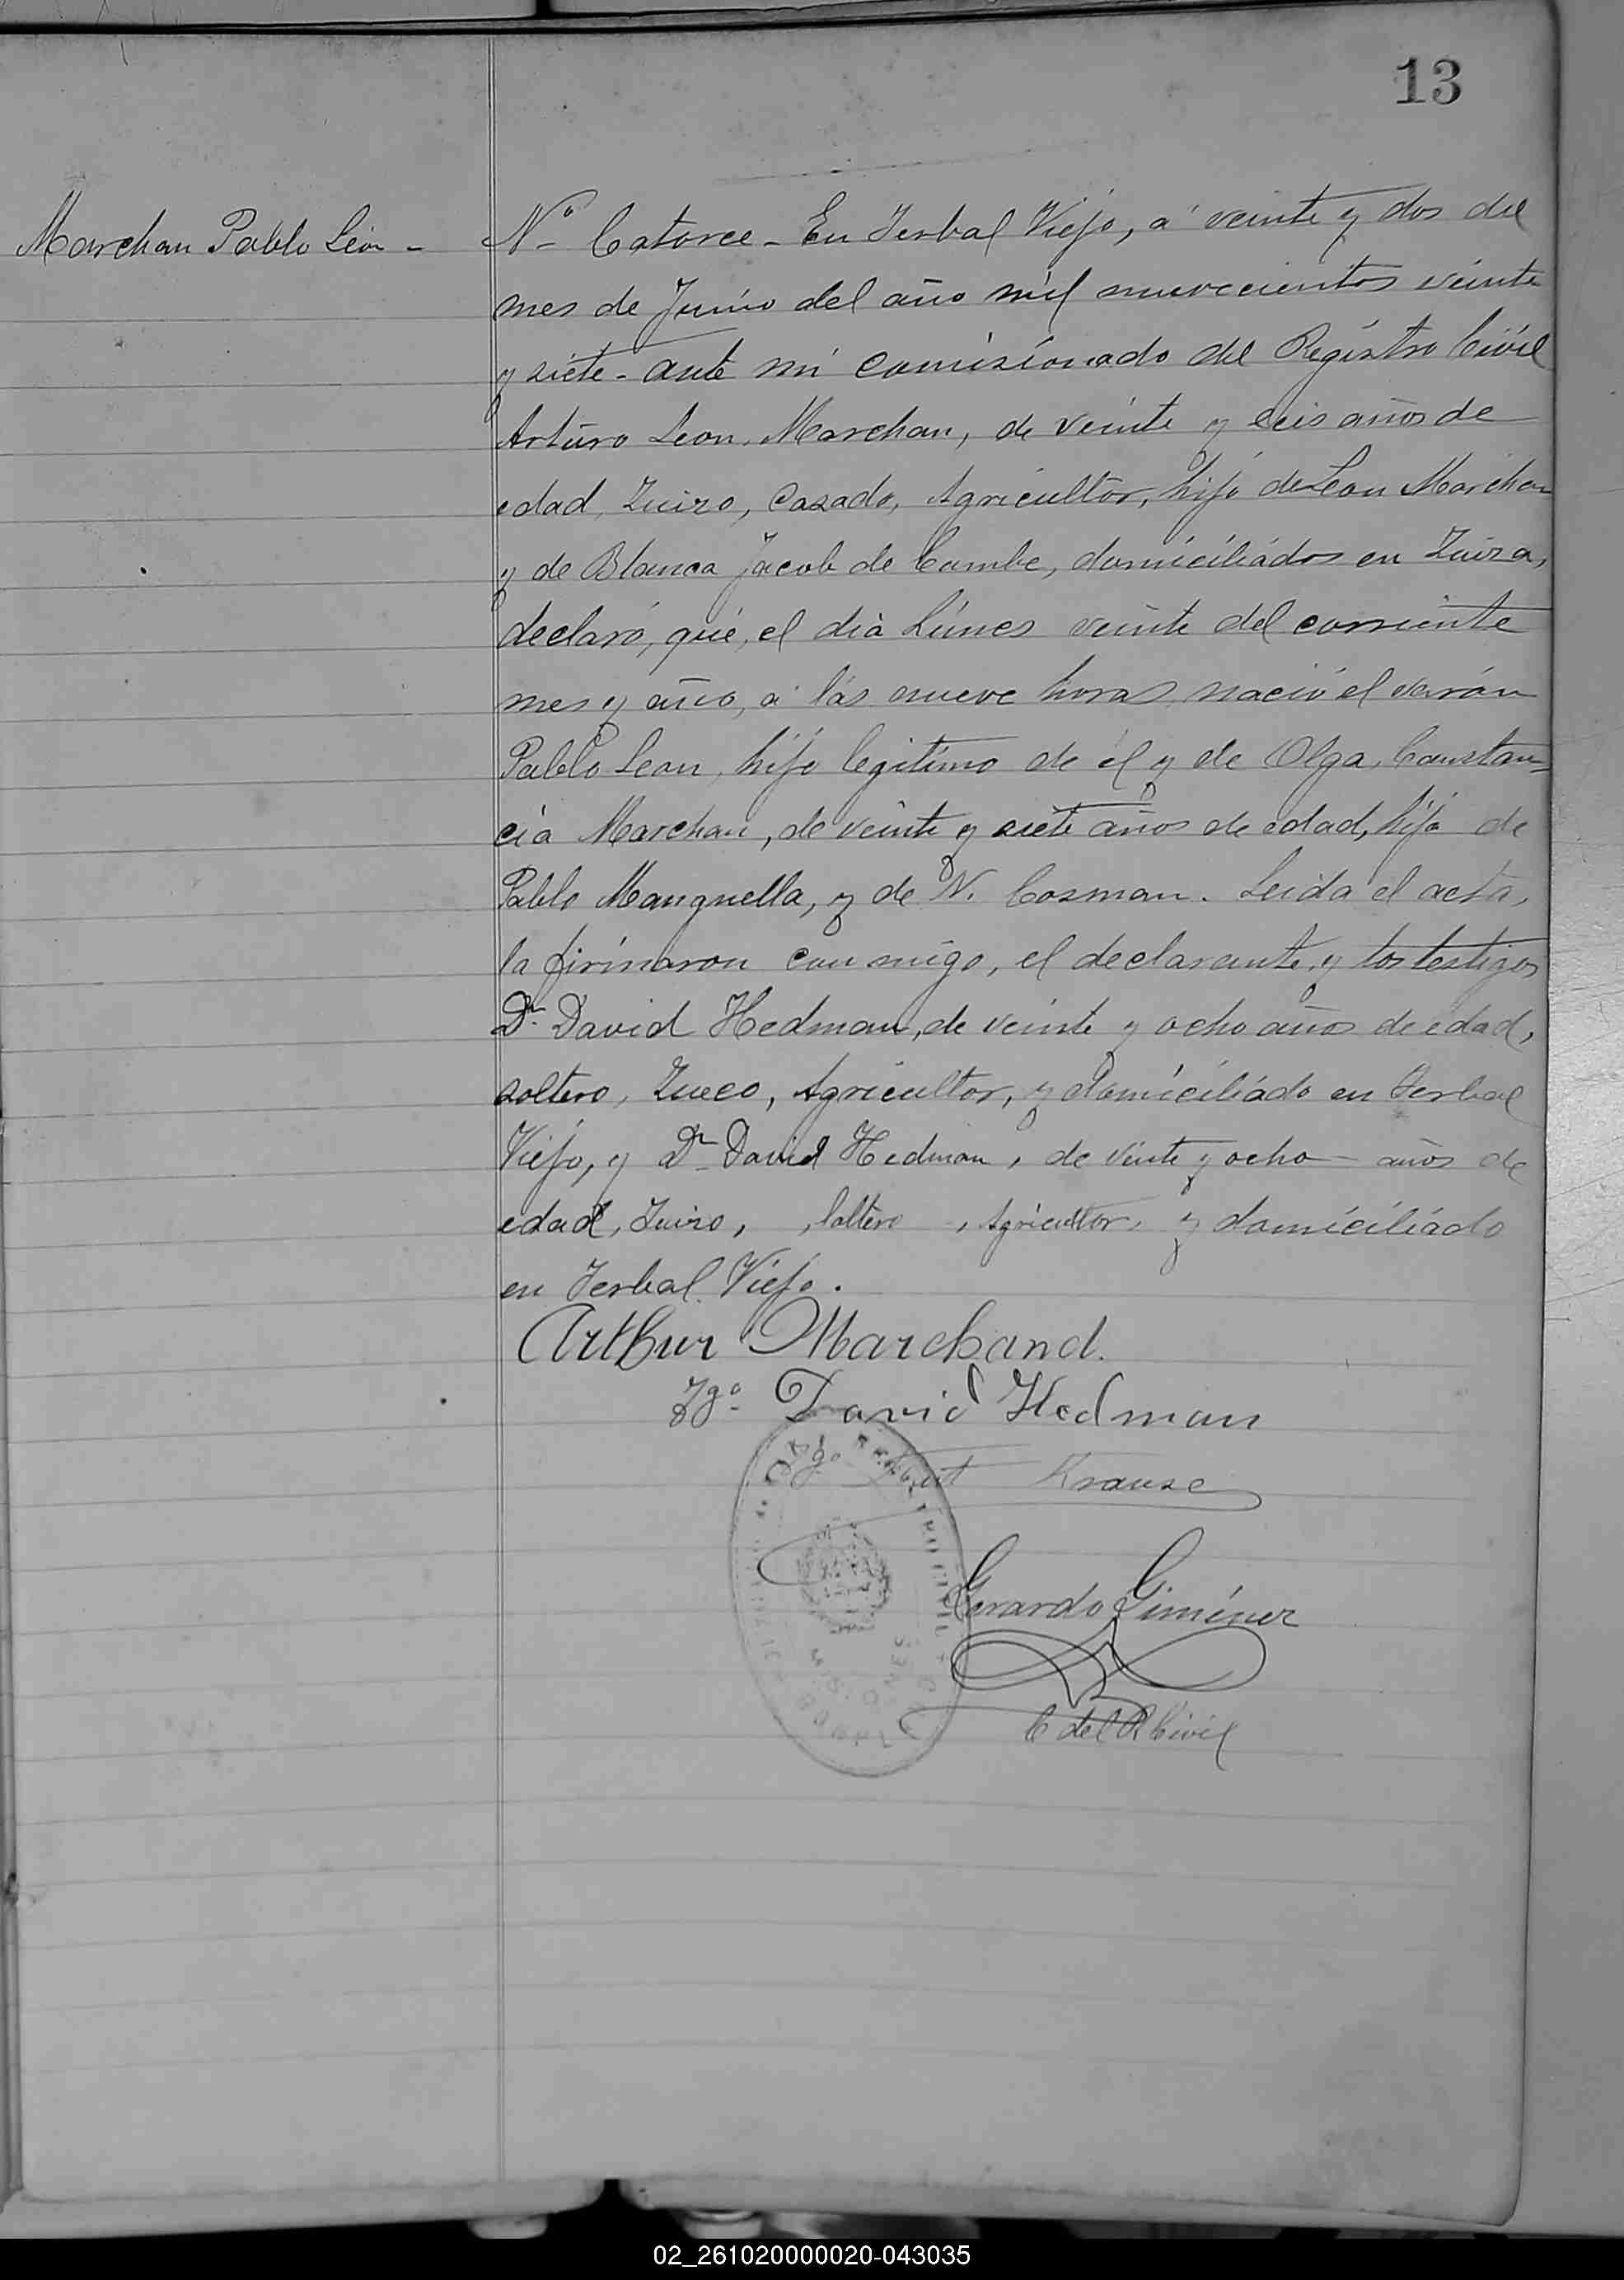 13
Marchan Pablo León -
Nº Catorce - En Yerbal Viejo, á veinte y dos del
mes de Junio del año mil nuevecientos veinte
y siete - ante mi comisionado del Registro Civil
Arturo Leon Marchan, de veinte y seis años de
edad, Zuizo, Casado, Agricultor, hijo de Leon Marchan
y de Blanca Jacob de Combe, domiciliados en Zuiza,
declaró, que, el dia Lúnes veinte del corriente
mes y año, a las nueve horas nació el varón
Pablo Leon, hijo legitimo de él y de Olga Constan=
cia Marchan, de veinte y siete años de edad, hija de
Pablo Manguella, y de N. Cosman. Leida el acta,
la firmaron con migo, el declarante y los testigos
Dn David Hedman, de veinte y ocho años de edad,
soltero, Zueco, Agricultor, y domiciliado en Yerbal
Viejo, y Dn David Hedman, de veinte y ocho años de
edad, Suizo, soltero, Agricultor, y domiciliado
en Yerbal Viejo.
Arthur Marchand.
Tgo David Hedman
Tgo Krause
Gerardo Giménez
C del R Civil
MISIONES
02_261020000020-043035